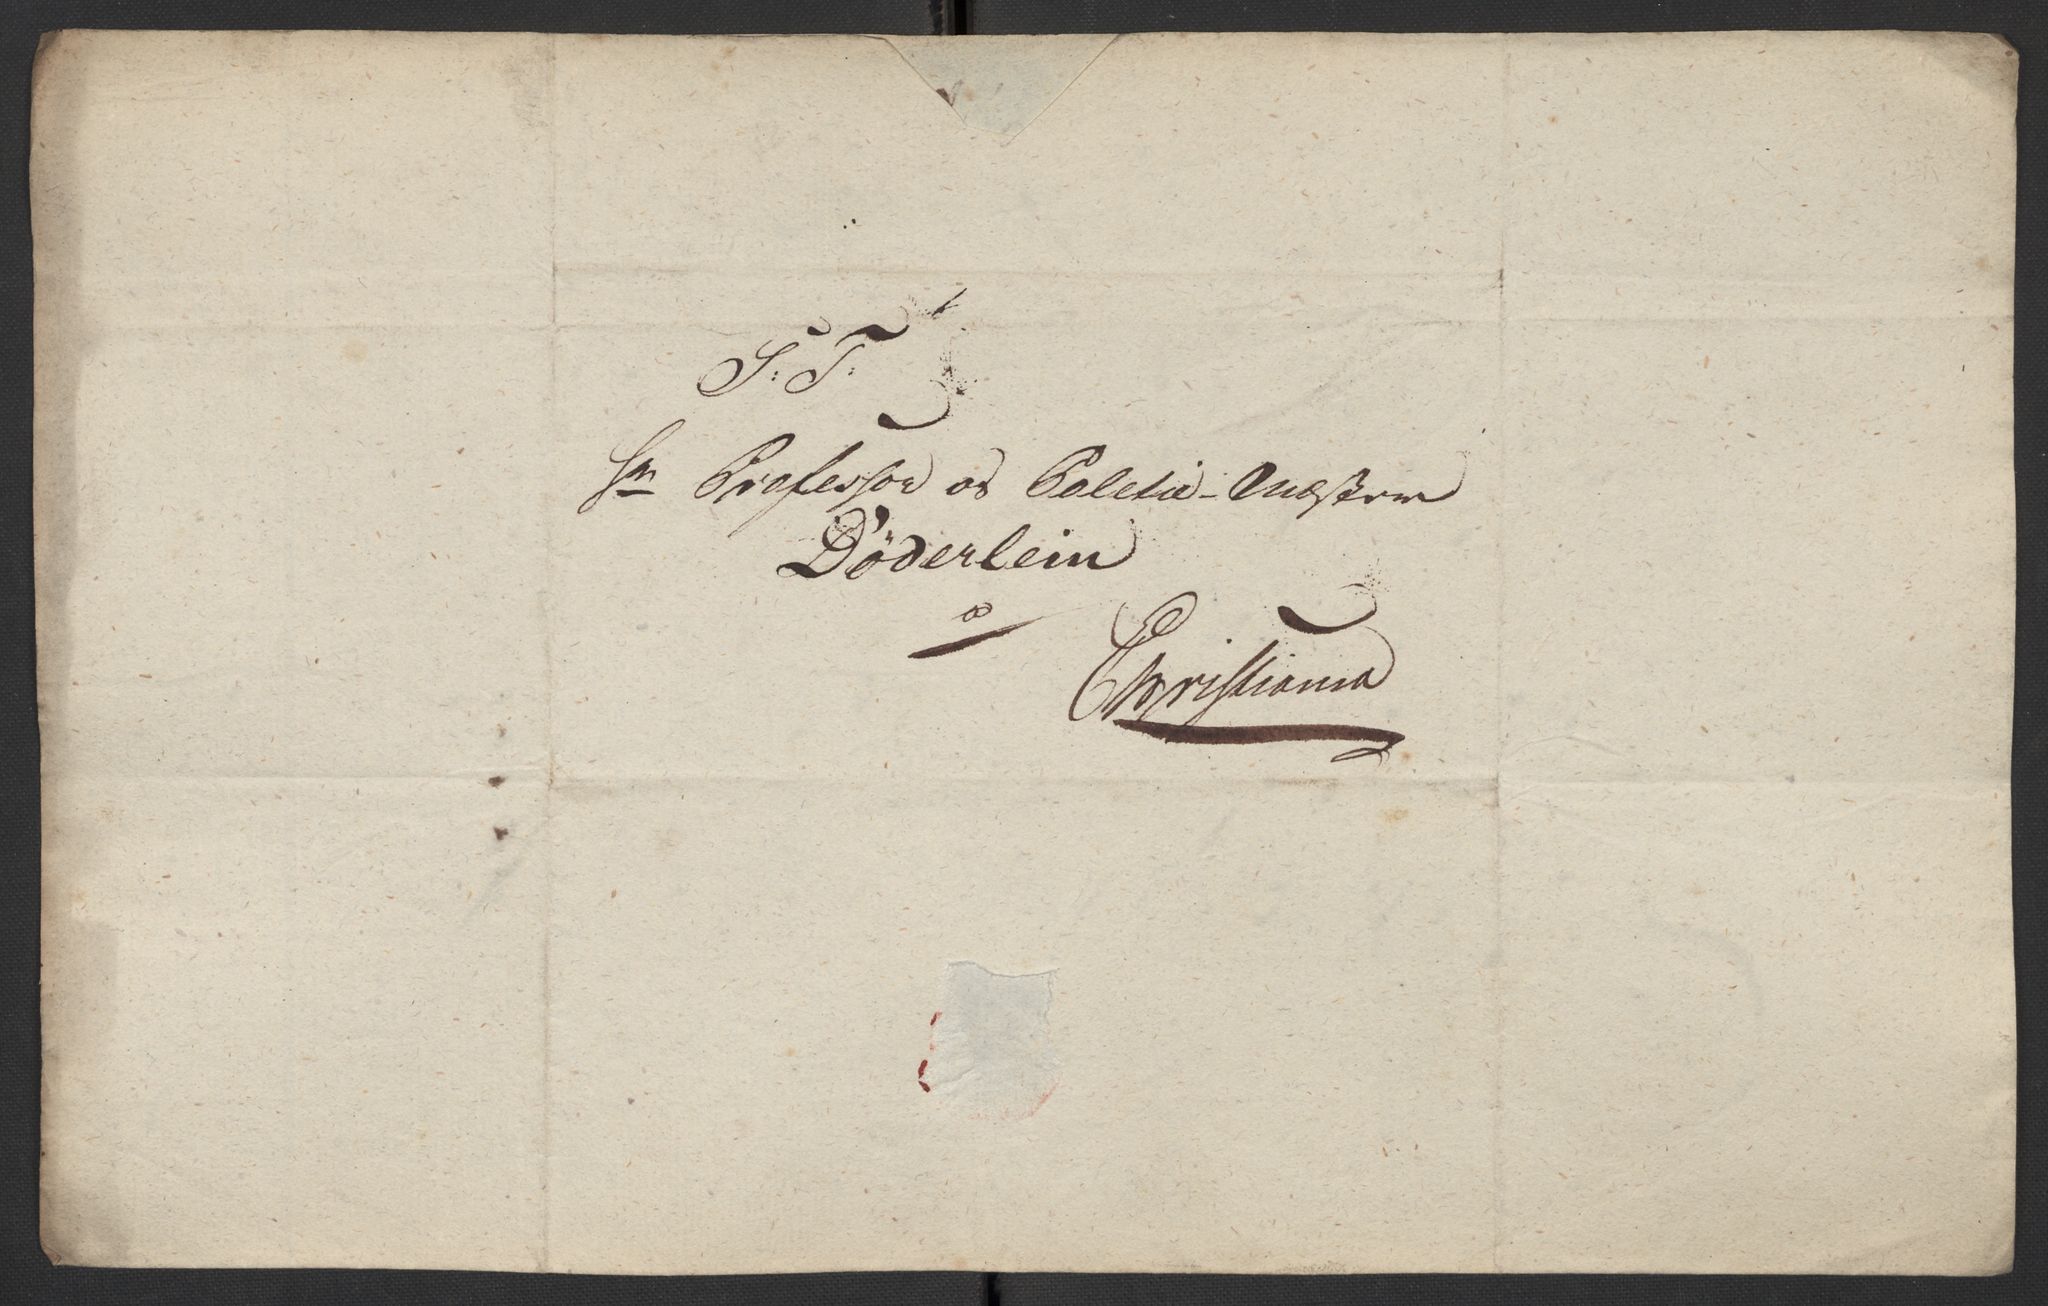 S: T:
Hr Professor og Politie-Mæster
Döderlein
Christiania